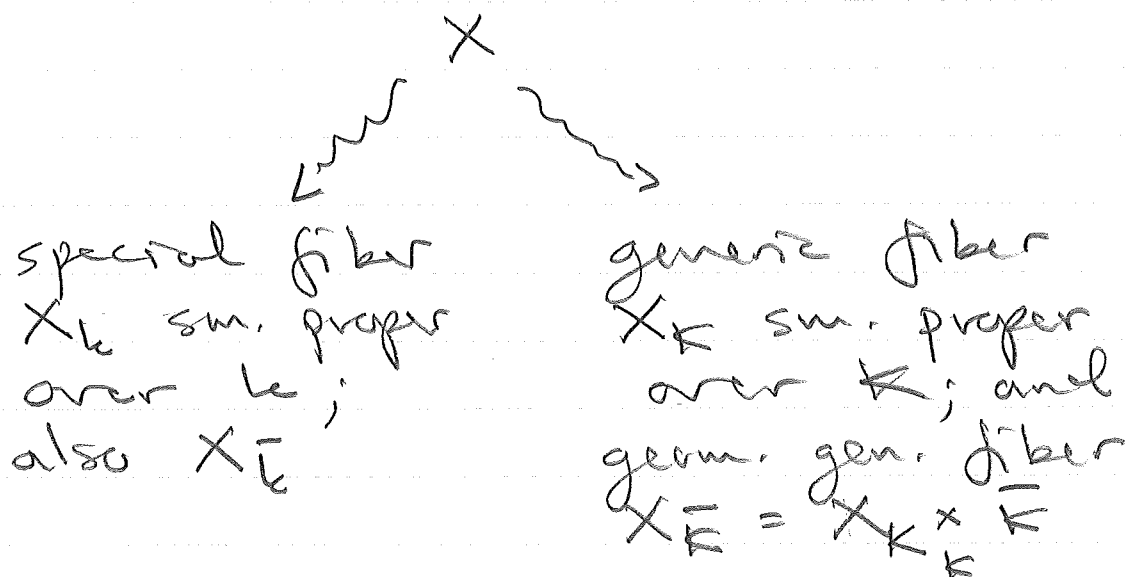 X
special fiber
X_k sm. proper
over k;
also X_k̄
generic fiber
X_K sm. proper
over K; and
geom. gen. fiber
X_K̄ = X_K ×_K K̄